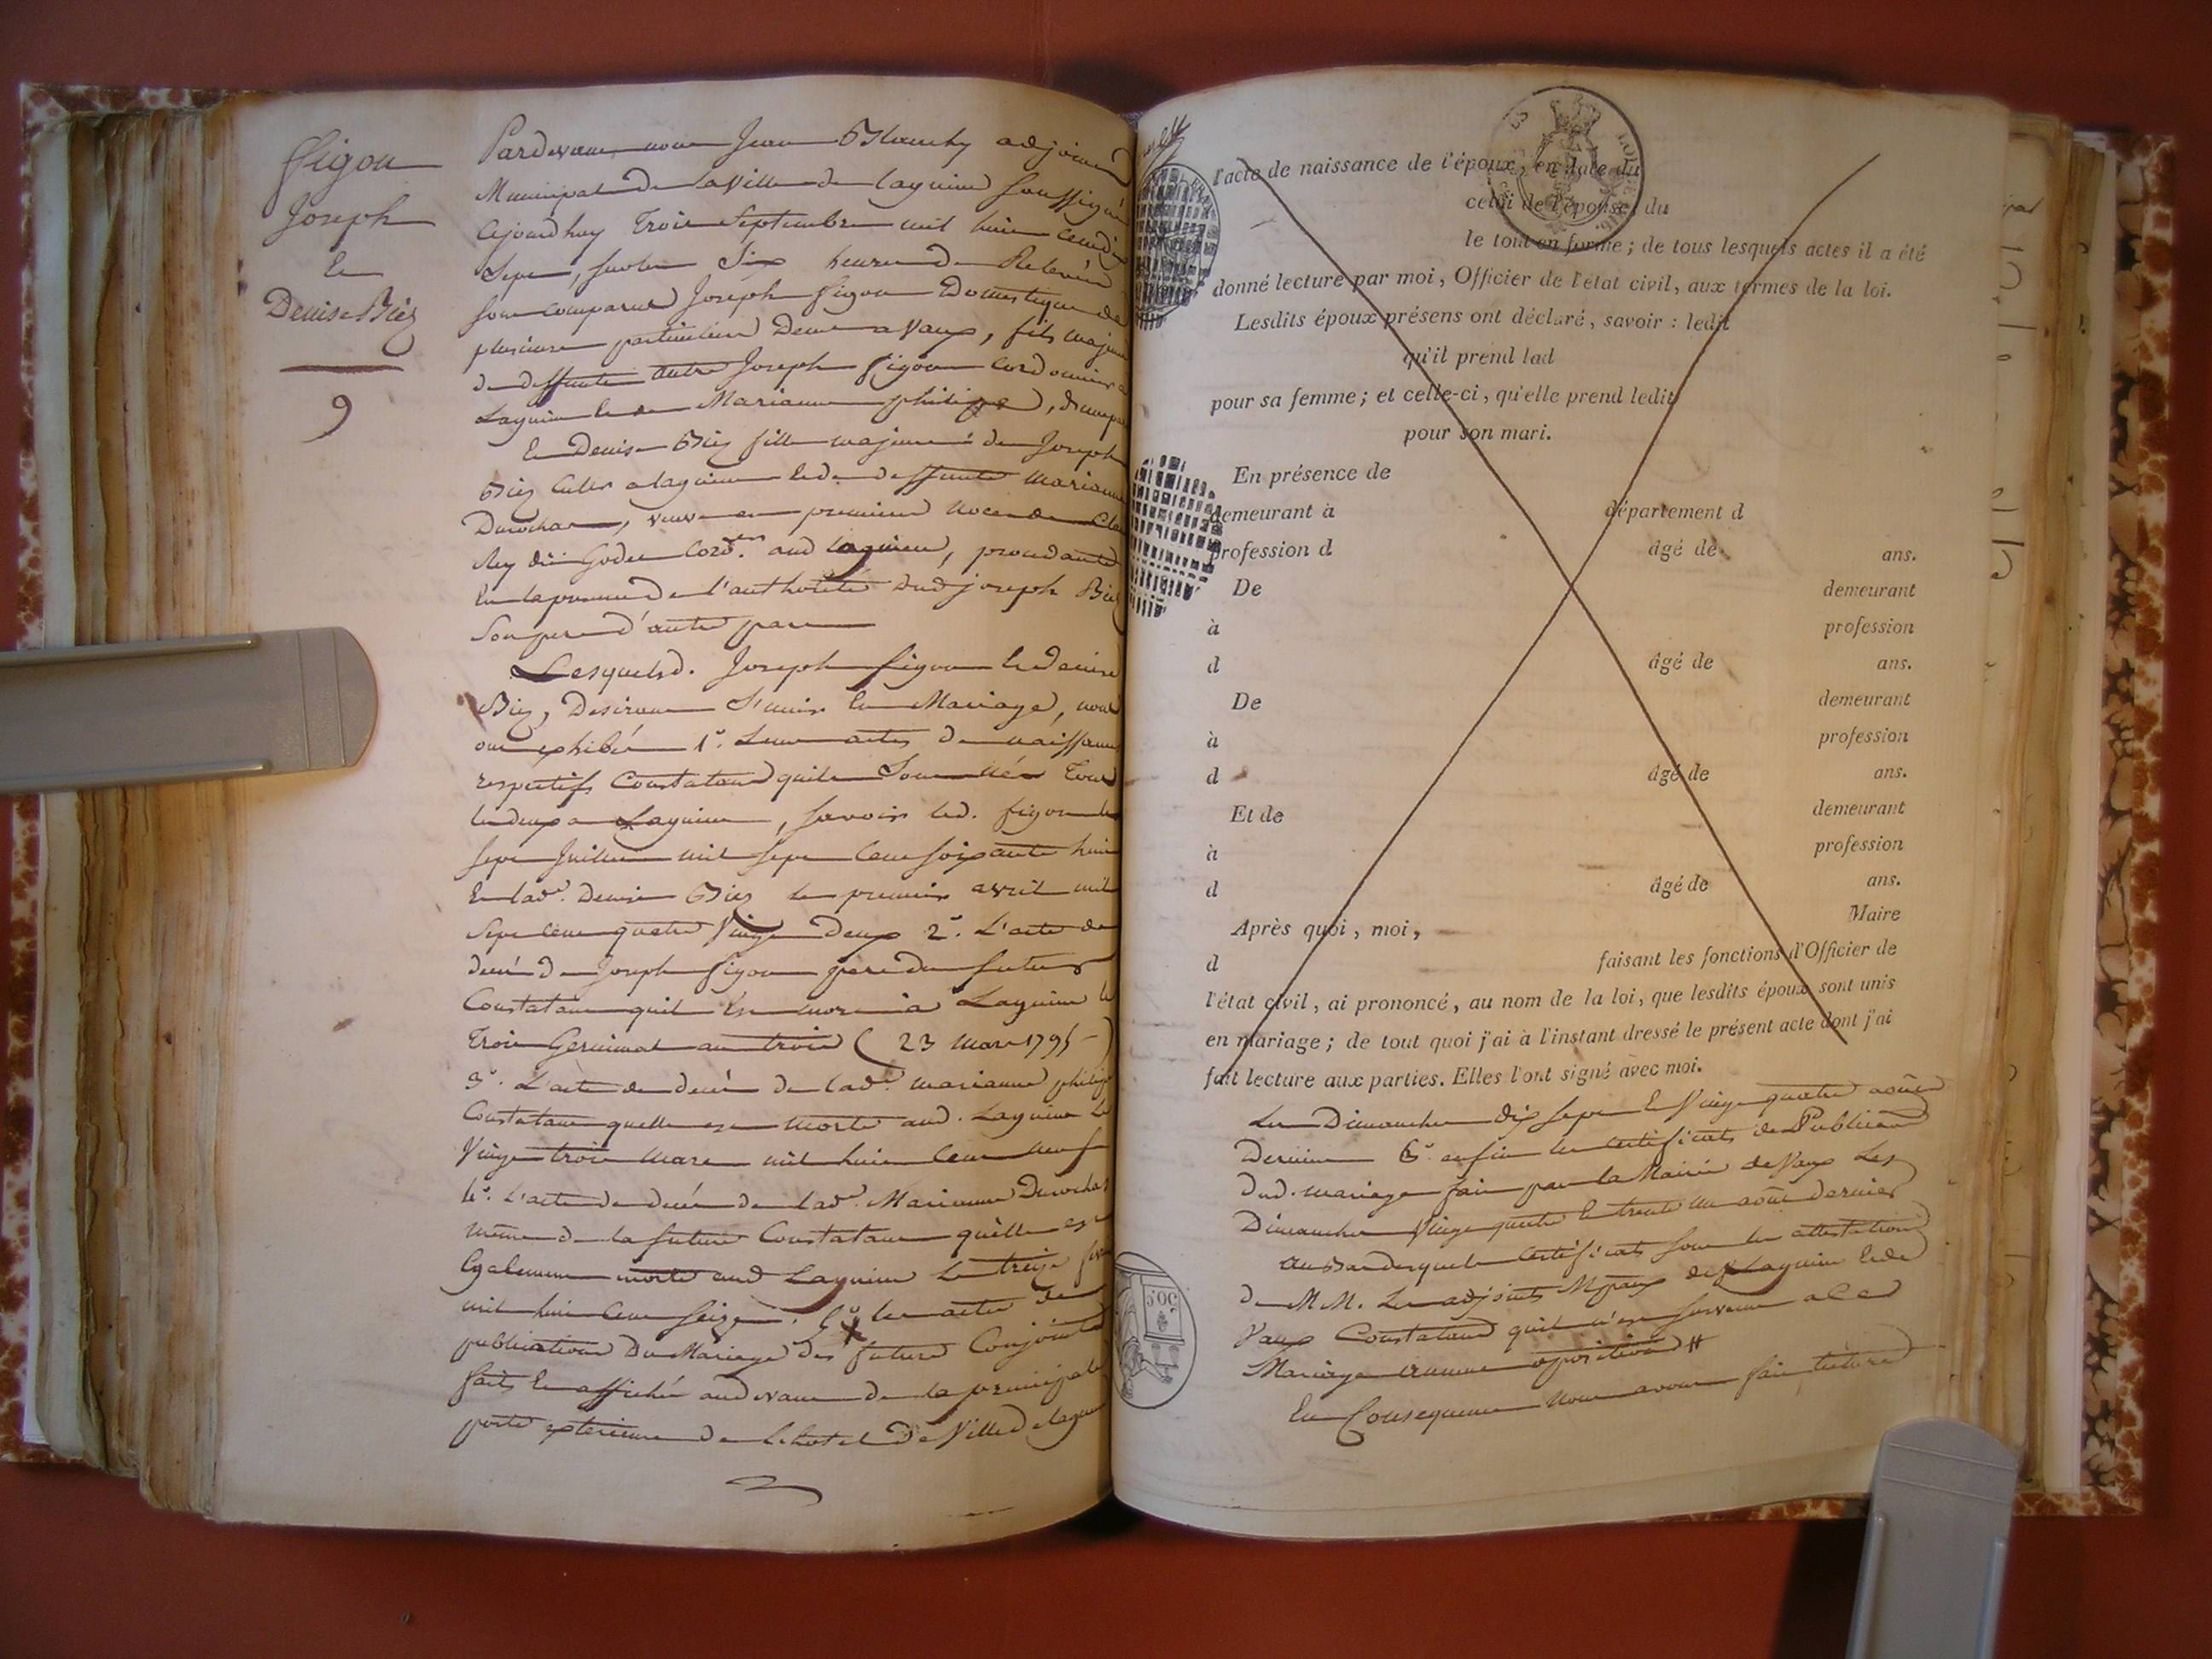 figon
Joseph
Et
Denise Biez
9
Pardevant nous Jean Blanchy adjoint
Municipal de la Ville de Lagnieu soussigné
Cejourdhuy Trois Septembre mil huit cent dix
Sept, sur les Six heures de Relevée
sont comparus Joseph figon Domestique de
plusieurs particuliers Demt a Vaux, fils majeur
de deffunts autre Joseph figon Cordonnier a
Lagnieu et de Marianne philippe, d'une part
Et Denise Biez fille majeure de Joseph
Biez Cultr a lagnieu et de deffunte Marianne
Durochat, veuve en premieres noces de
Rey dit Godet Cord.er aud lagnieu, procedante
En la presence et de l'authorité dud joseph Biez
Son pere d'autre part
Lesquels d. Joseph figon et Denise
Biez, Desirant S'unir En Mariage, nous
ont exhibé 1°. Leurs actes de naissance
respectifs Constatant quils Sont nés Tous
les deux a Lagnieu, savoir led. figon le
sept Juillet mil sept Cent soixante huit
Et lade. Denise Biez le premier avril mil
Sept Cent quatre Vingt Deux 2°. L'acte de
decés de Joseph figon pere du futur
Constatant quil Est mort à Lagnieu le
Trois Germinal an trois (23 Mars 1795)
3°. L'acte de decés de lade. marianne philippe
Constatant quelle est morte aud. Lagnieu Le
Vingt trois Mars mil huit Cent neuf
4°. L'acte de decés de lade. Marianne Durochat
mere de la future Constatant quèlle est
Egalement morte aud Lagnieu Le treize
mil huit Cent Seize. 5° les actes de
publications Du Mariage des futurs Conjoints
faits Et affichés audevant de la principale
porte exterieure de L'hotel de Ville de lagnieu
l'acte de naissance de l'époux, en date du
celui de l'épouse, du
le tout en forme ; de tous lesquels actes il a été
donné lecture par moi, Officier de l'état civil, aux termes de la loi.
Lesdits époux présens ont déclaré, savoir : ledit
qu'il prend lad
pour sa femme ; et celle-ci, qu'elle prend ledit
pour son mari.
En présence de
demeurant à département d
profession d âgé de ans.
De demeurant
à profession
d âgé de ans.
De demeurant
à profession
d âgé de ans.
Et de demeurant
à profession
d âgé de ans.
Après quoi, moi, Maire
d faisant les fonctions d'Officier de
l'état civil, ai prononcé, au nom de la loi, que lesdits époux sont unis
en mariage ; de tout quoi j'ai à l'instant dressé le présent acte dont j'ai
fait lecture aux parties. Elles l'ont signé avec moi.
Les Dimanches dix sept Et Vingt quatre août
Dernier 6°. enfin les certificats de Publication
dud. mariage fait par la Mairie de Vaux Les
Dimanches Vingt quatre Et trente un août dernier
au bas desquels Certificats sont les attestations
de MM. Les adjoints Mpaux de Lagnieu Et de
Vaux Constatant quil n'est survenu a ced
Mariage aucune oposition #
En Consequence nous avons fait lecture
50C